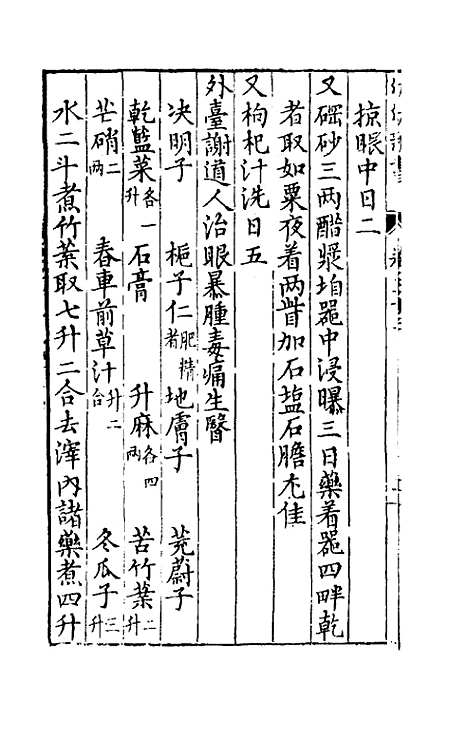 掠眼中日二
又磠砂三两醋漿垍器中浸曝三日藥着器四畔乾
者取如粟夜着两眥加石塩石膽尤佳
又枸杞汁洗日五
外臺謝道人治眼暴腫毒痛生瞖
决明子 梔子仁肥精者 地膚子 茺蔚子
乾藍菜各一升 石膏 升麻各四两 苦竹葉二升
芒硝二两 春車前草汁升二合 冬瓜子三升
水二斗煮竹葉取七升二合去滓內諸藥煮四升